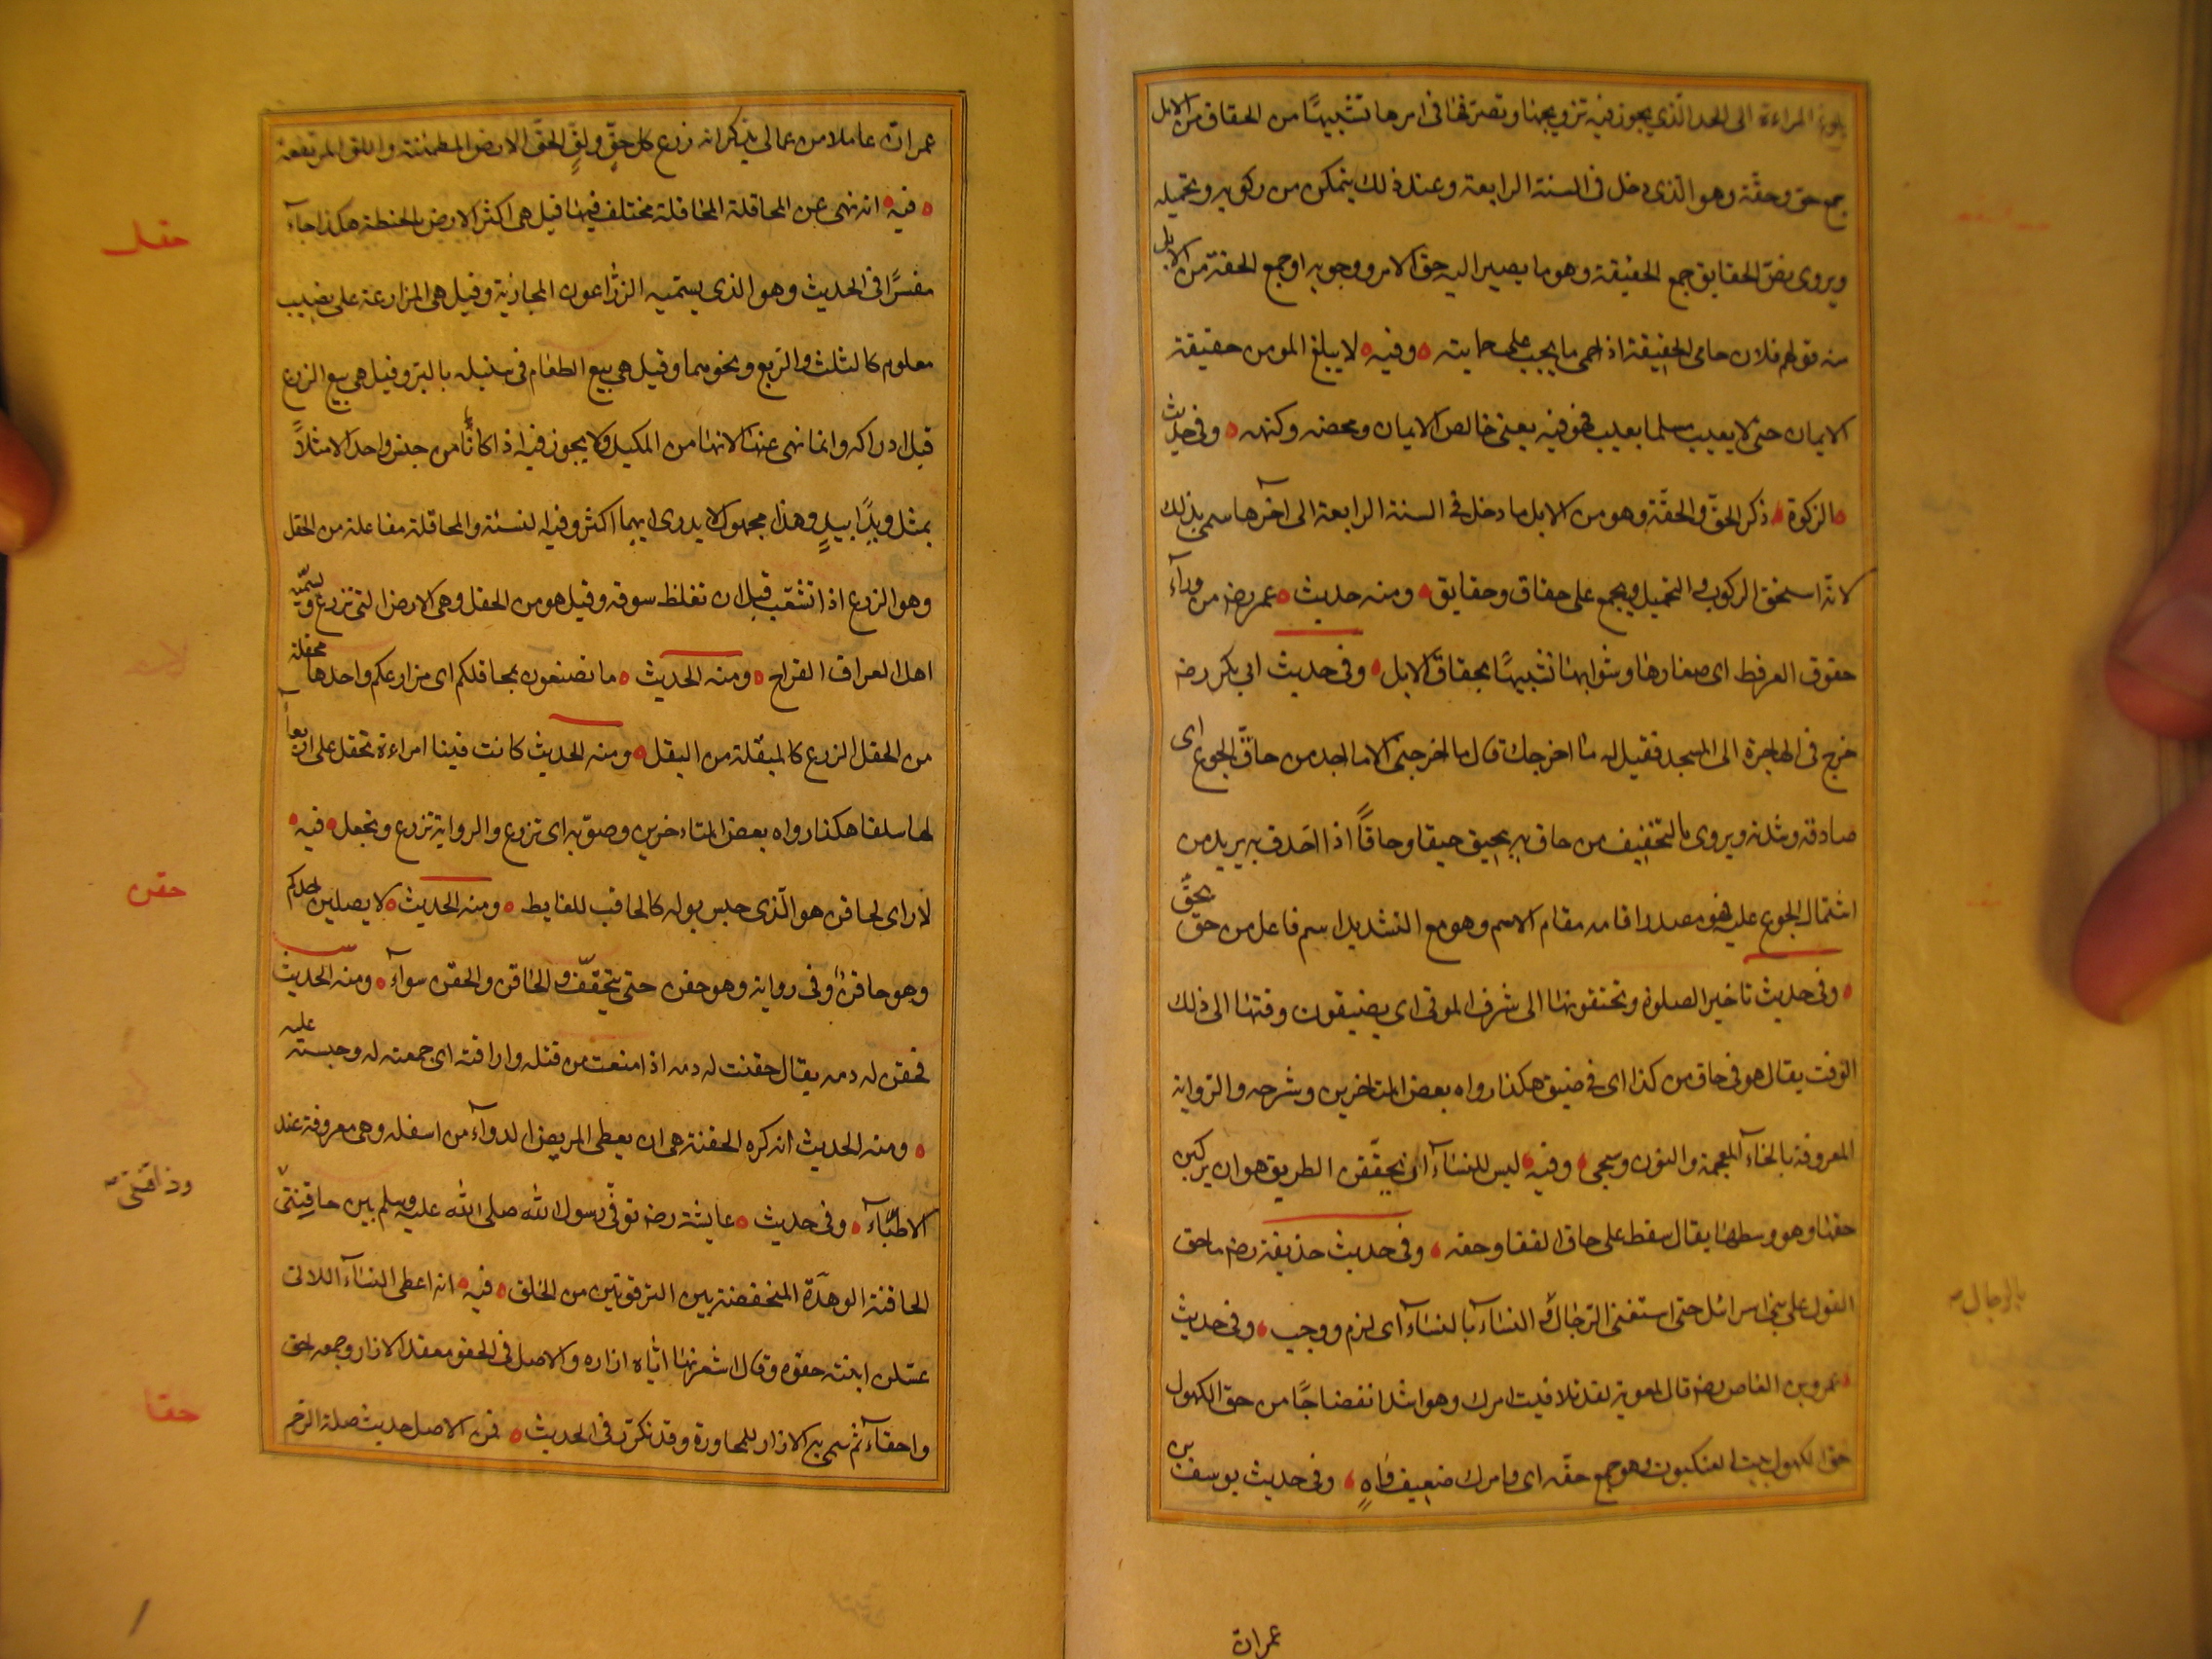 بلوغ المراءة الى الحد الّذى يجوز فيه تزويجها وتصرّفها فى امرها تشبيهًا من الحقاق من الابل
جمع حق وحقّة وهو الّذى دخل فى السنة الرابعة وعند ذلك يتمكن من ركوبه وتحميله
ويروى نصّ الحقايق جمع الحقيقة وهو ما يصير اليه حق الامر ووجوبه او جمع الحقة من الابل
منه قولهم فلان حامى الحقيقة اذا حمى ما يجب عليه حمايته وفيه لا يبلغ المومن حقيقة
الايمان حتى لا يعيب مسلما بعيب هو فيه يعنى خالص الايمان ومحضه وكنهه وفى حديث
الزكوة ذكر الحقّ والحقّة وهو من الابل ما دخل فى السنة الرابعة الى آخرها سمى بذلك
لانّه استحق الركوب والتحميل ويجمع على حقاق وحقايق ومنه حديث عمر رضه من ورآء
حقوق العرفط اى صغارها وشوابها تشبيهًا بحقاق الابل وفى حديث ابى بكر رضه
خرج فى الهاجرة الى المسجد فقيل له ما اخرجك قال ما اخرجنى الا ما اجد من حاقّ الجوع اى
صادقه وشدته ويروى بالتخفيف من حاق به يحيق حيقا وحاقًا اذا احدق به يريد من
اشتمال الجوع عليه فهو مصدر اقامه مقام الاسم وهو مع التشديد اسم فاعل من حق يحقّ
وفى حديث تاخير الصلوة وتحتقونها الى شرف الموتى اى يضيقون وقتها الى ذلك
الوقت يقال هو فى حاق من كذا اى فى ضيق هكذا رواه بعض المتاخرين وشرحه والرواية
المعروفة بالخآء المعجمة والنون وسيجى وفيه ليس للنسآء ان يحققن الطريق هو ان يركبن
حقها وهو وسطها يقال سقط على حاق القفا وحقه وفى حديث حذيفة رضه ما حق
القول على بنى اسرائل حتى استغنى الرّجال و النسآء بالنسآء اى لزم ووجب وفى حديث
عمرو بن العاص رضه قال لمعوية لقد تلافيت امرك وهو اشد انفضاجًا من حق الكهول
حق الكهول بيت العنكبوت وهو جمع حقّه اى وامرك ضعيف وَاهٍ وفى حديث يوسف بن
بالرجال
عمران
عمران عاملا من عمالى يذكر انه زرع كل حقٍّ ولقٍّ الحقّ الارض المطمئنة واللق المرتفعة
فيه انه نهى عن المحاقلة المحاقلة مختلف فيها قيل هى اكثر الارض بالحنطة هكذا جآء
مفسرًا فى الحديث وهو الذى يسميه الزرّاعون المجاذبة وقيل هى المزارعة على نصيب
معلوم كالثلث والربع ونحوهما وقيل هى بيع الطعام فى سنبله بالبر وقيل هى بيع الزرع
قبل ادراكه وانما نهى عنها لانها من المكيل ولا يجوز فيه اذا كانا من جنس واحد الا مثلاً
بمثل ويدًا بيدٍ وهذا مجهول لا يدرى ايهما اكثر وفيه النسئة والمحاقلة مفاعلة من الحقل
وهو الزرع اذا تشعّب قبل ان تغلظ سوقه وقيل هو من الحقل وهى الارض التى تزرع ويسمّيه
اهل العراق القراح ومنه الحديث ما تصنعون بمحاقلكم اى مزارعكم واحدها محقلة
من الحقل الزرع كالمبقلة من البقل ومنه الحديث كانت فينا امراءة تحقل على اربعآء
لها سلقا هكذا رواه بعض المتاءخرين وصوّبه اى تزرع والرواية تزرع وتجعل فيه
لا راى لحاقن هو الّذى حبس بوله كالحاقب للغايط ومنه الحديث لا يصلين احدكم
وهو حاقن وفى رواية وهو حقن حتى يتخفّف و الحاقن والحقن سوآء ومنه الحديث
فحقن له دمه يقال حقنت له دمه اذا منعت من قتله واراقته اى جمعته له وحبسته عليه
ومنه الحديث انه كره الحقنة هى ان يعطى المريض الدوآء من اسفله وهى معروفة عند
الاطبّآء وفى حديث عايشة رضه توفّى رسول الله صلى الله عليه وسلم بين حاقنتى
الحاقنة الوهدة المنخفضة بين الترقوتين من الحلق فيه انه اعطى النسآء اللاتى
غسلن ابنته حقوه وقال اشعرنها ايّاه ازاره والاصل فى الحقو معقد الازار وجمعه احق
واحقآء ثم سمى به الازار للمجاورة وقد تكرر فى الحديث فمن الاصل حديث صلة الرحم
حقل
حقن
وذاقنتى
حقا